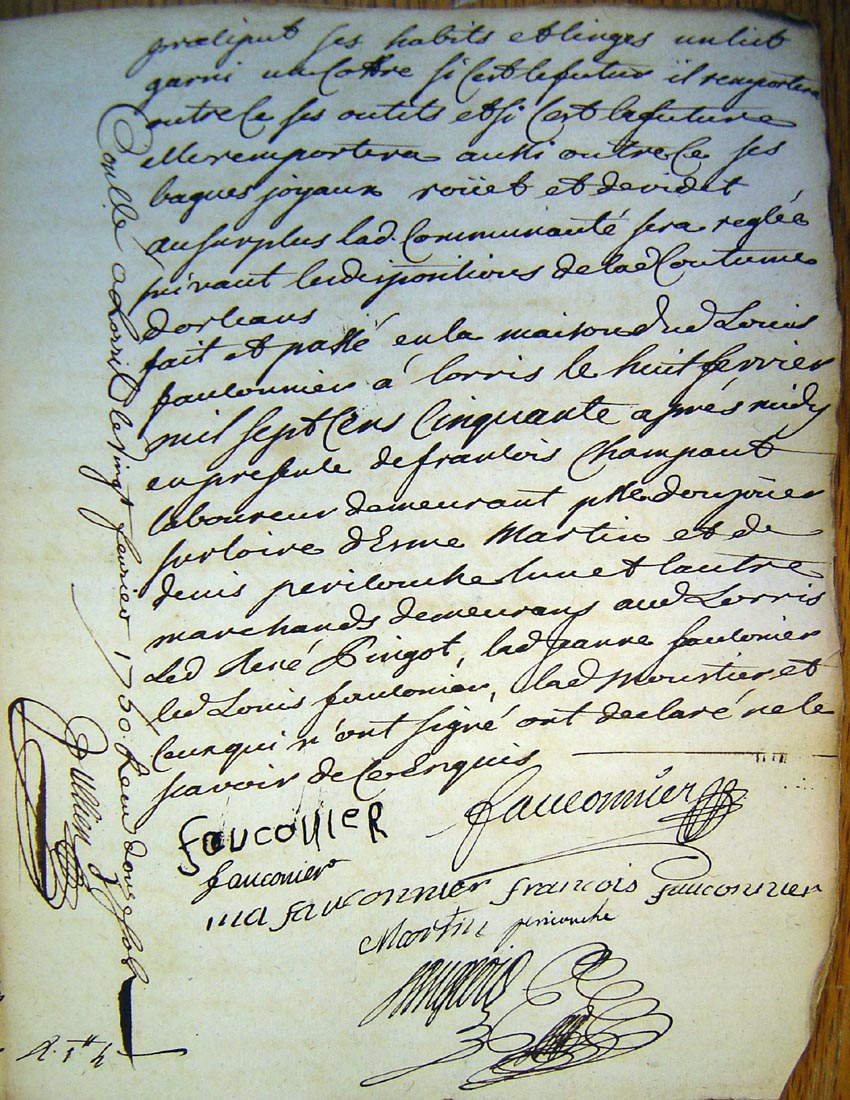 preciput ses habits et linges un lict
garni un coffre si cest le futur il remportera
outre ce ses outils et si cest la future
elle remportera aussi outre ce ses
bagues joyaux roüet et devidet
au surplus lad. Communauté sera reglée
suivant les dispositions de lad Coutume
dorleans
fait et passé en la maison dud Louis
fauconnier à lorris le huit fevrier
mil sept cens cinquante après midy
en presence de francois Champault
laboureur demeurant psse
sur loire d'Esme Martin et de
denis perilouche lun et lautre
marchands demeurans aud Lorris
Led René Pingot, lad jeanne fauconier
led Louis fauconier, lad Moustier et
ceux qui n'ont signé ont declaré ne le
scavoir de ce enquis
fauconier
fauconnier
fauconier
fauconnier francois fauconnier
Martin perilouche
Controllé a Lorris le vingt fevrier 1750. Recu douze sols
Jullien